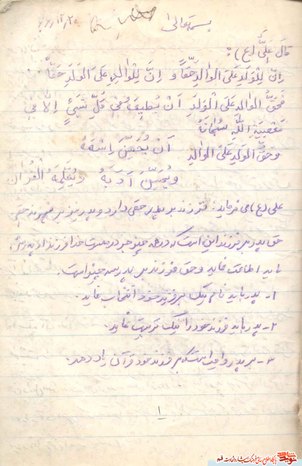 بسمه تعالی
قَالَ عَلِیٌّ (ع):
اِنَّ لِلْوَلَدِ عَلَی الْوَالِدِ حَقّاً وَ اِنَّ لِلْوَالِدِ عَلَی الْوَلَدِ حَقّاً
فَحَقُّ الْوَالِدِ عَلَی الْوَلَدِ اَنْ یُطِیعَهُ فِی کُلِّ شَیْئٍ اِلَّا فِی
مَعْصِیَةِ اللَّهِ سُبْحَانَهُ
وَ حَقُّ الْوَلَدِ عَلَی الْوَالِدِ اَنْ یُحَسِّنَ اِسْمَهُ
وَ یُحَسِّنَ اَدَبَهُ وَ یُعَلِّمَهُ الْقُرْآنَ
علی (ع) می فرماید: فرزند بر پدر حقی دارد و پدر نیز بر فرزند حقی
حق پدر بر فرزند این است که در همه چیز جز در معصیت خدا فرزند از پدرش
باید اطاعت نماید و حق فرزند بر پدر سه چیز است.
۱- پدر باید نام نیک بر فرزند خود انتخاب نماید.
۲- پدر باید فرزند خود را نیک تربیت نماید.
۳- بر پدر واجب است که بر فرزند خود قرآن یاد دهد.
۱